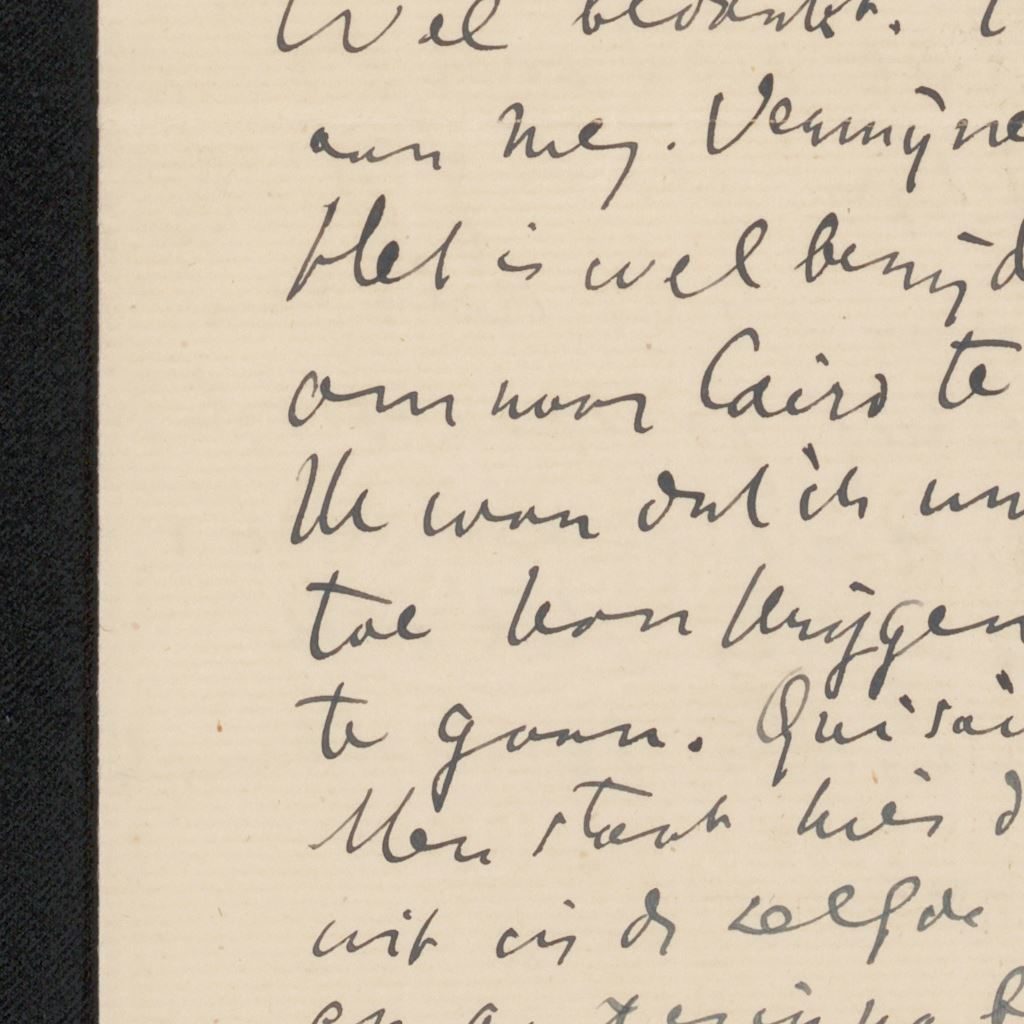 Wel bedankt.
aan Mej. Vermijne
Het is wel benijd
om naar Cairo te
Ik wou dat ik
toe kon krijgen
te gaan. Qui sai
Men staat hier d
uit in de zelfde